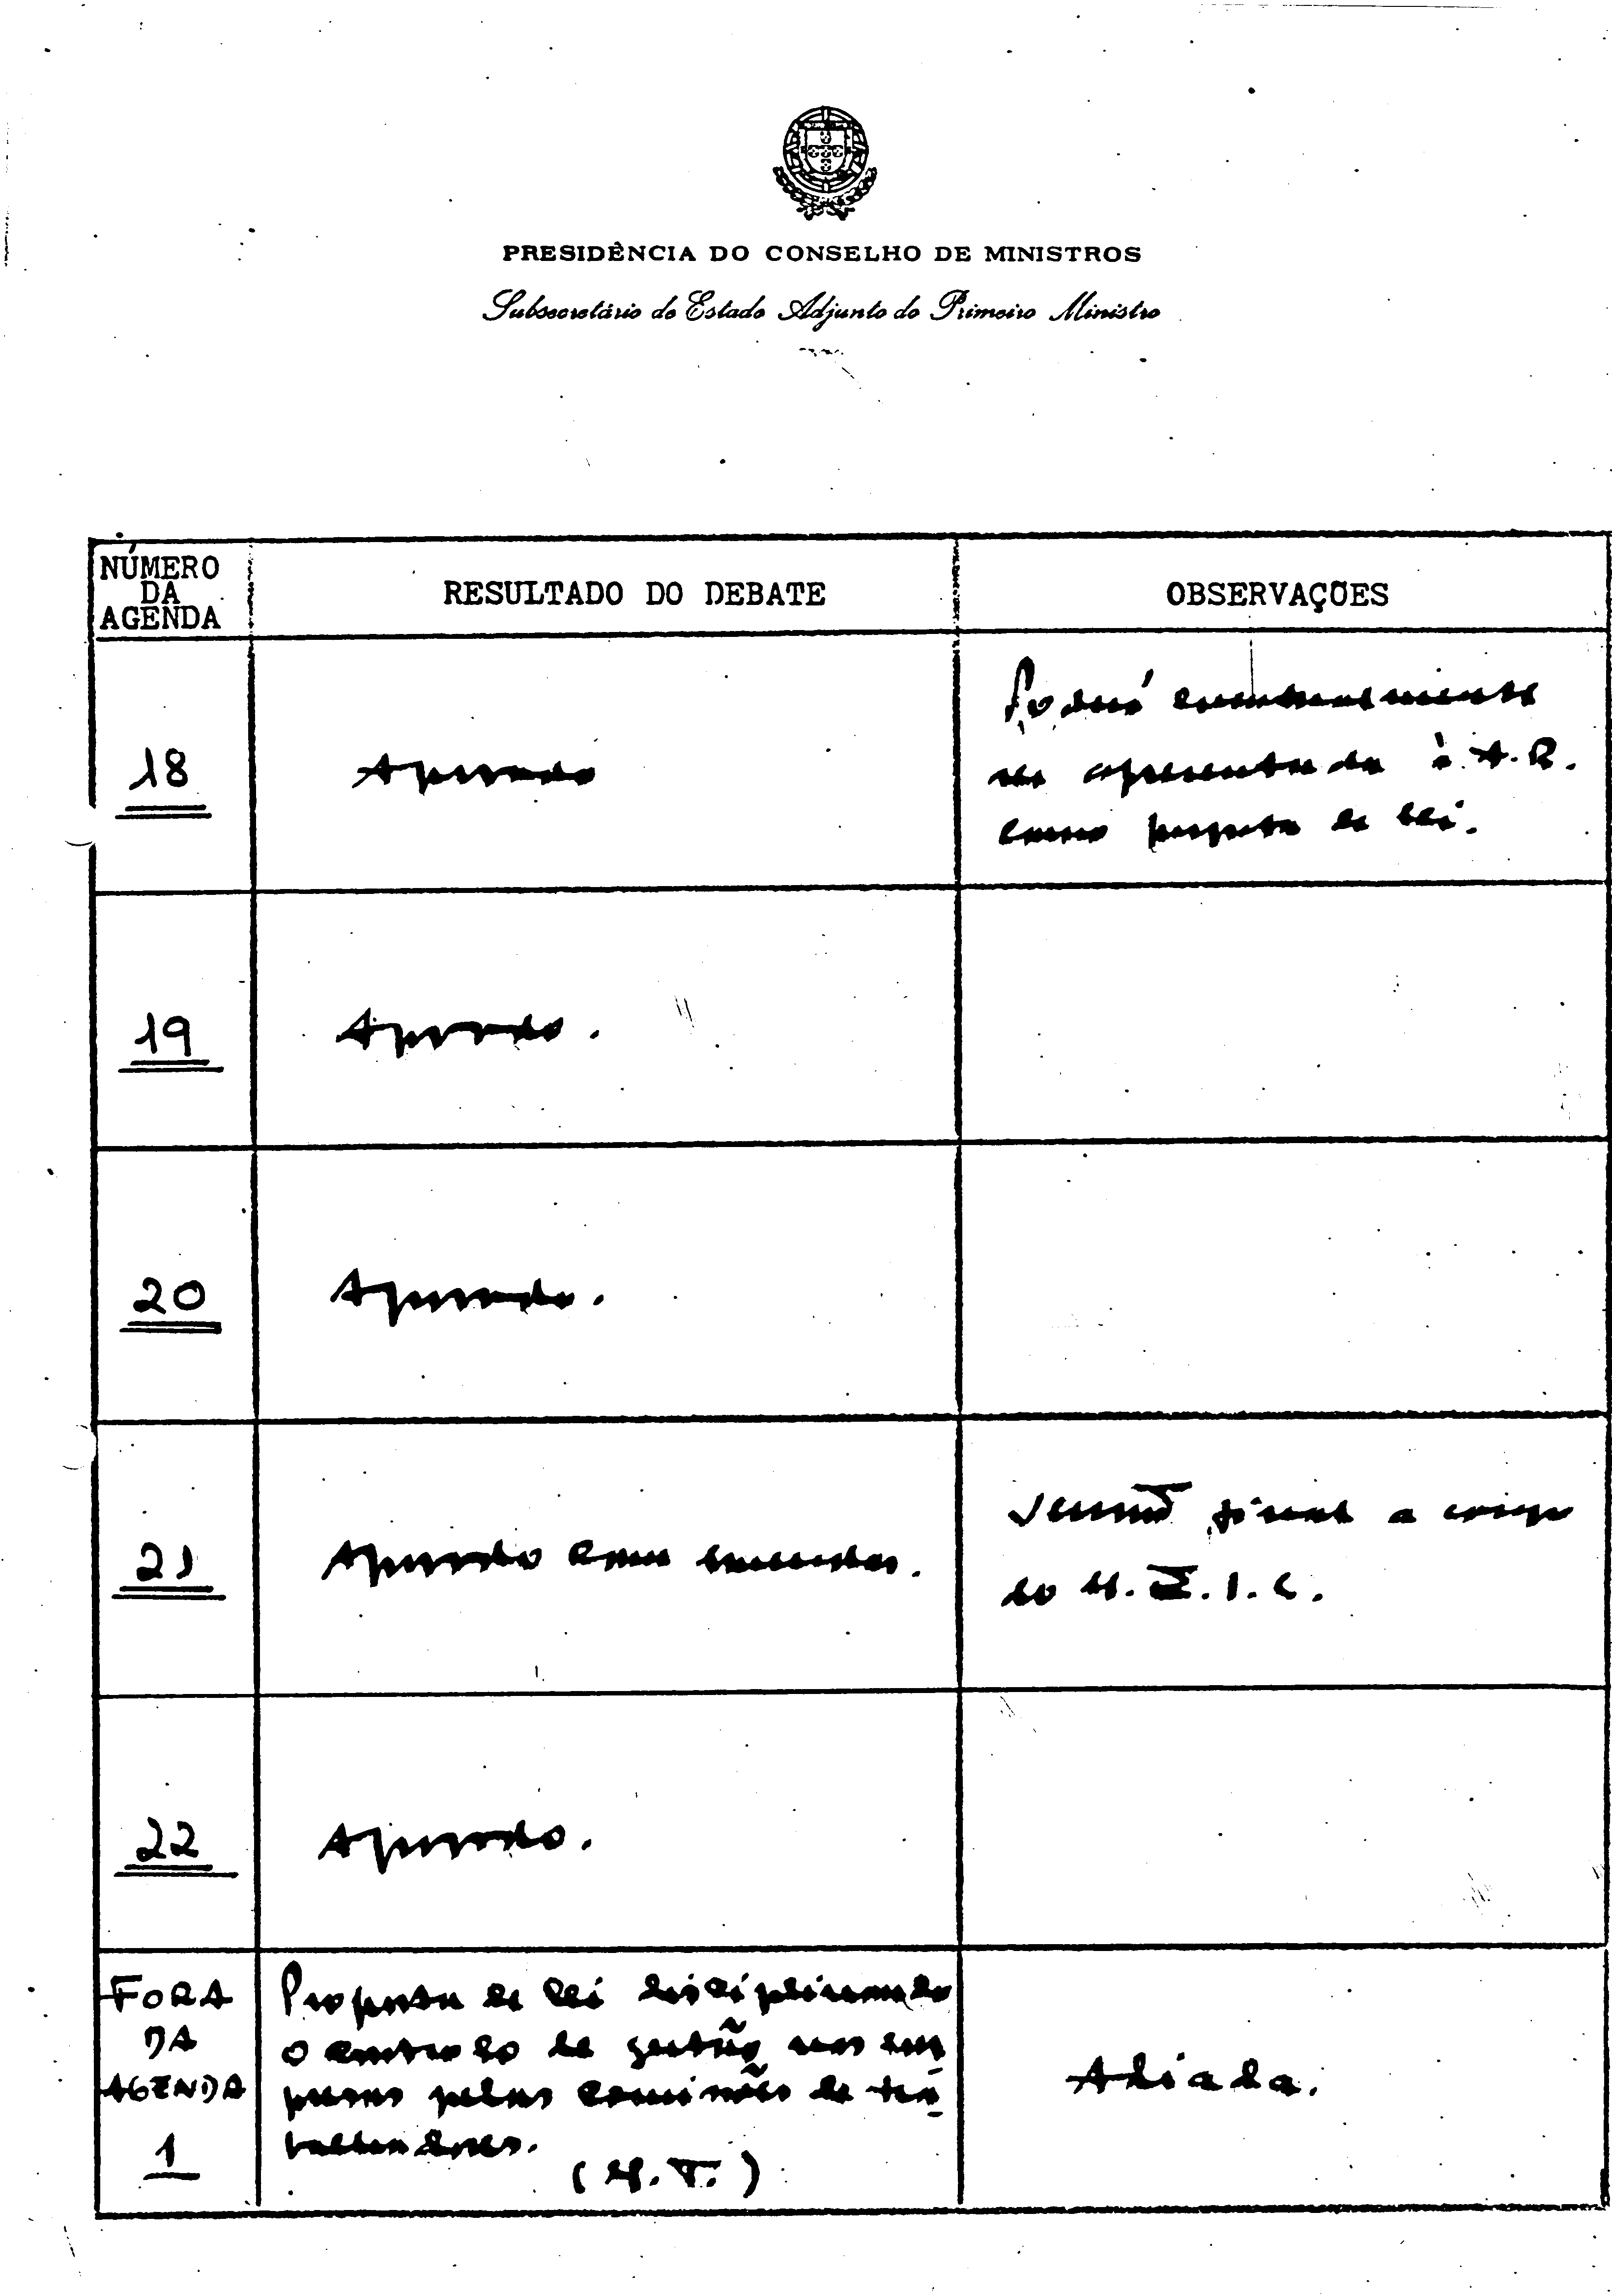 PRESIDÊNCIA DO CONSELHO DE MINISTROS
Subsecretário de Estado Adjunto do Primeiro Ministro
NÚMERO
DA
AGENDA
RESULTADO DO DEBATE
OBSERVAÇÕES
18
Aprovado
Poderá eventualmente
ser apresentada à A.R.
como proposta de lei.
19
Aprovado.
20
Aprovado.
21
Aprovado com emendas.
Versão final a cargo
do M.E.I.C.
22
Aprovado.
FORA
DA
AGENDA
1
Proposta de lei disciplinando
o controlo de gestão nas em
presas pelas comissões de tra
balhadores.
(M.T.)
Adiada.